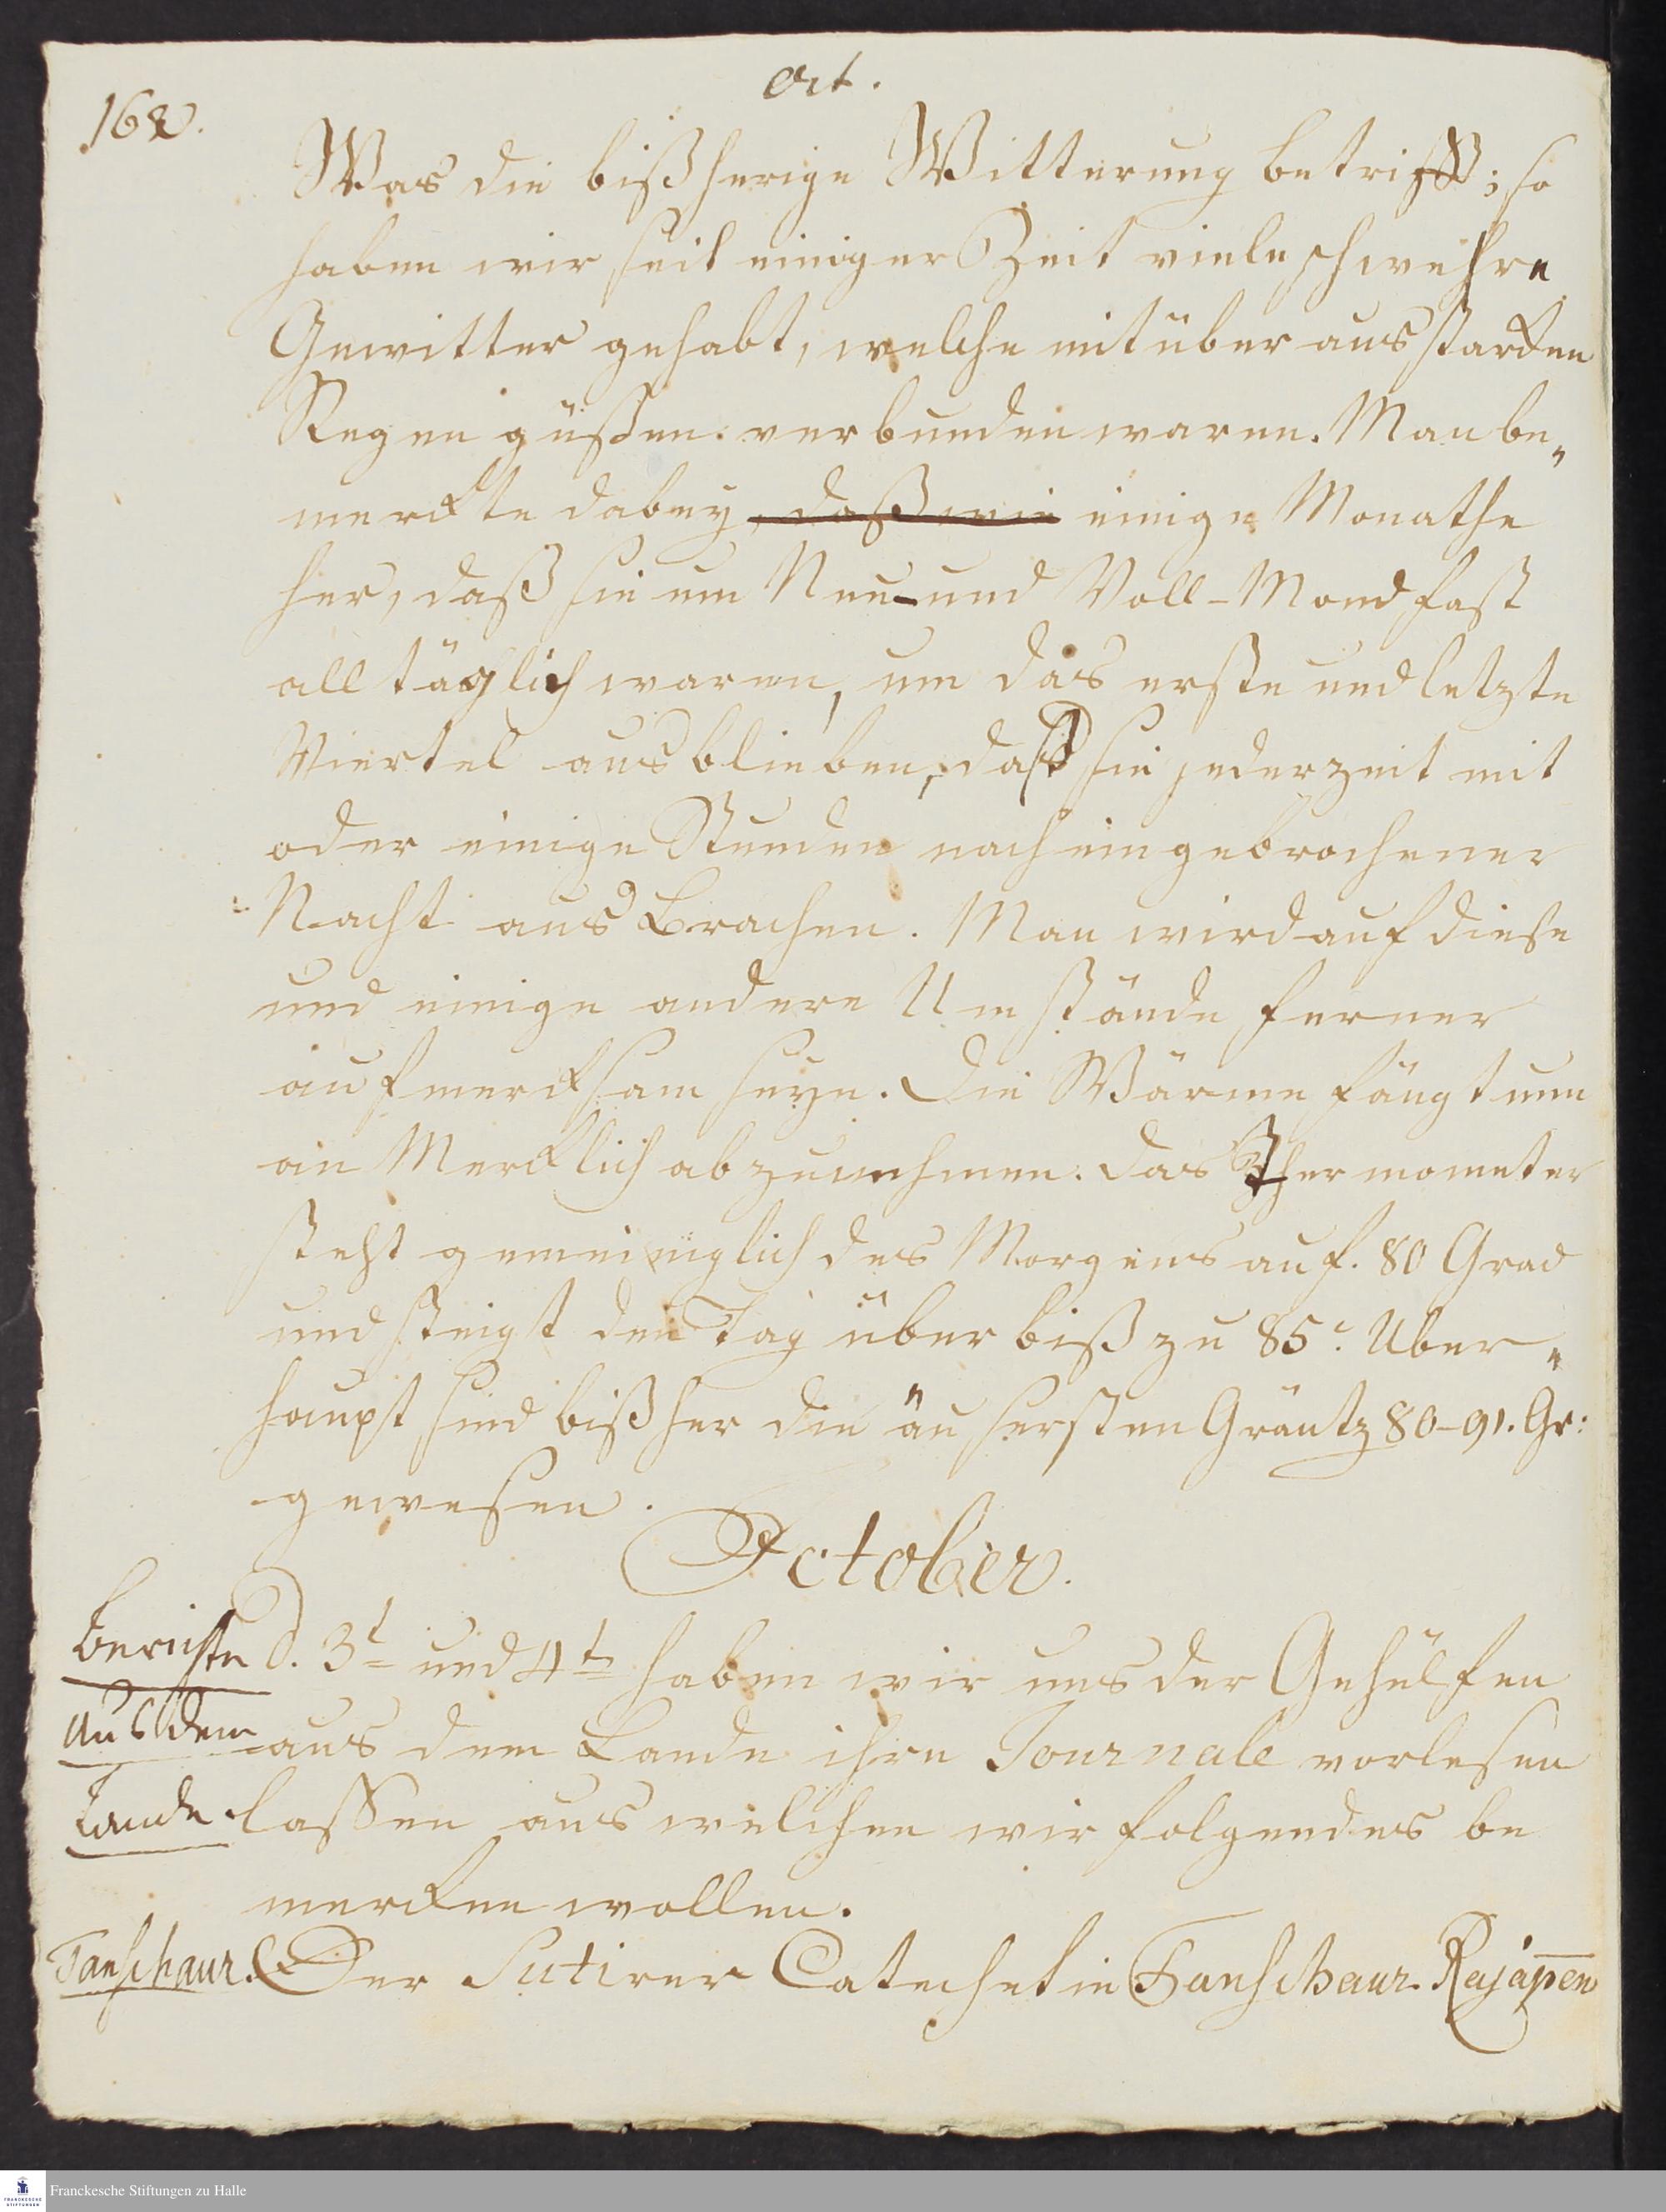 Oct.
162.
Was die bißherige Witterung betrifft; so
haben wir seit einiger Zeit viele schwehre
Gewitter gehabt, welche mit über aus starcken
Regen güßen verbunden waren. Man be„
merckte dabey, daß wie einige Monathe
her, daß sie um Neu- und Voll-Mond fast
all täglich waren, um das erste und letzte
Viertel aus blieben, daß sie jederzeit mit
oder einige Stunden nach eingebrochener
Nacht aus brachen. Man wird auf diese
und einige andere Umstände ferner
aufmercksam seyn. Die Wärme fängt nun
an Mercklich abzunehmen. Das Thermometer
steht gemeiniglich des Morgens auf. 80 Grad
und steigt den Tag über biß zu 85. Uber„
haupt sind bißher die äusersten Gräntz 80-91. Gr:
gewesen.
October.
Berichte
aus dem
Lande
d. 3t und 4tn haben wir uns der Gehülfen
aus dem Lande ihre Journale vorlesen
lassen aus welchen wir folgendes be
mercken wollen.
Tanschaur.
Der Sutirer Catechet in Tanschaur. Rajapen